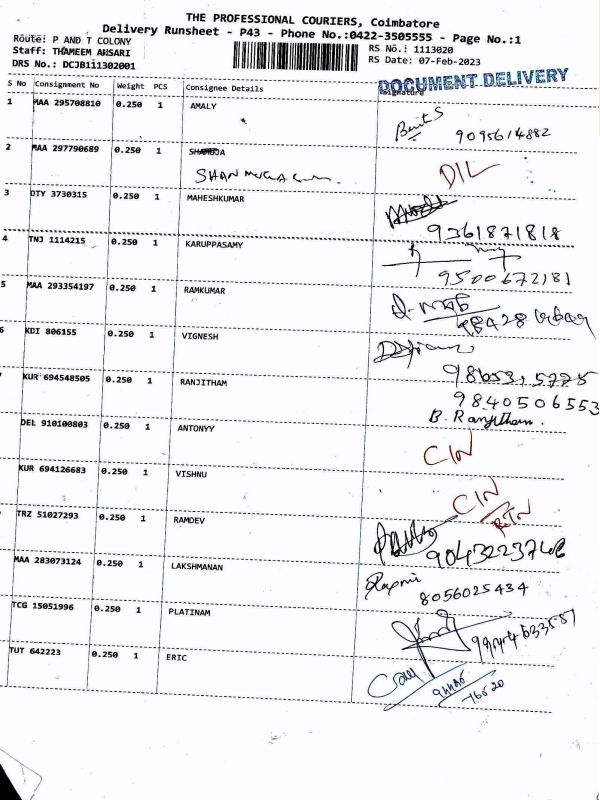 THE PROFESSIONAL COURIERS, Coimbatore
Delivery Runsheet - P43 - Phone No.:0422-3505555 - Page No.:1
Route: P AND T COLONY
Staff: THAMEEM ANSARI
DRS No.: DCJB111302001
RS No.: 1113020
RS Date: 07-Feb-2023
DOCUMENT DELIVERY
S No Consignment No Weight PCS Consignee Details Signature
1 MAA 295708810 0.250 1 AMALY
9095614882
2 MAA 297790689 0.250 1
DIL
3 DTY 3730315 0.250 1 MAHESHKUMAR
9361871818
4 TNJ 1114215 0.250 1 KARUPPASAMY
9500672181
5 MAA 293354197 0.250 1 RAMKUMAR
6 KDI 806155 0.250 1 VIGNESH
KUR 694548505 0.250 1 RANJITHAM
9840506553
B. Ranjitham.
DEL 910100803 0.250 1 ANTONYY
CIN
KUR 694126683 0.250 1 VISHNU
CIN
RTN
TRZ 51027293 0.250 1 RAMDEV
MAA 283073124 0.250 1 LAKSHMANAN
8056025434
TCG 15051996 0.250 1 PLATINAM
TUT 642223 0.250 1 ERIC